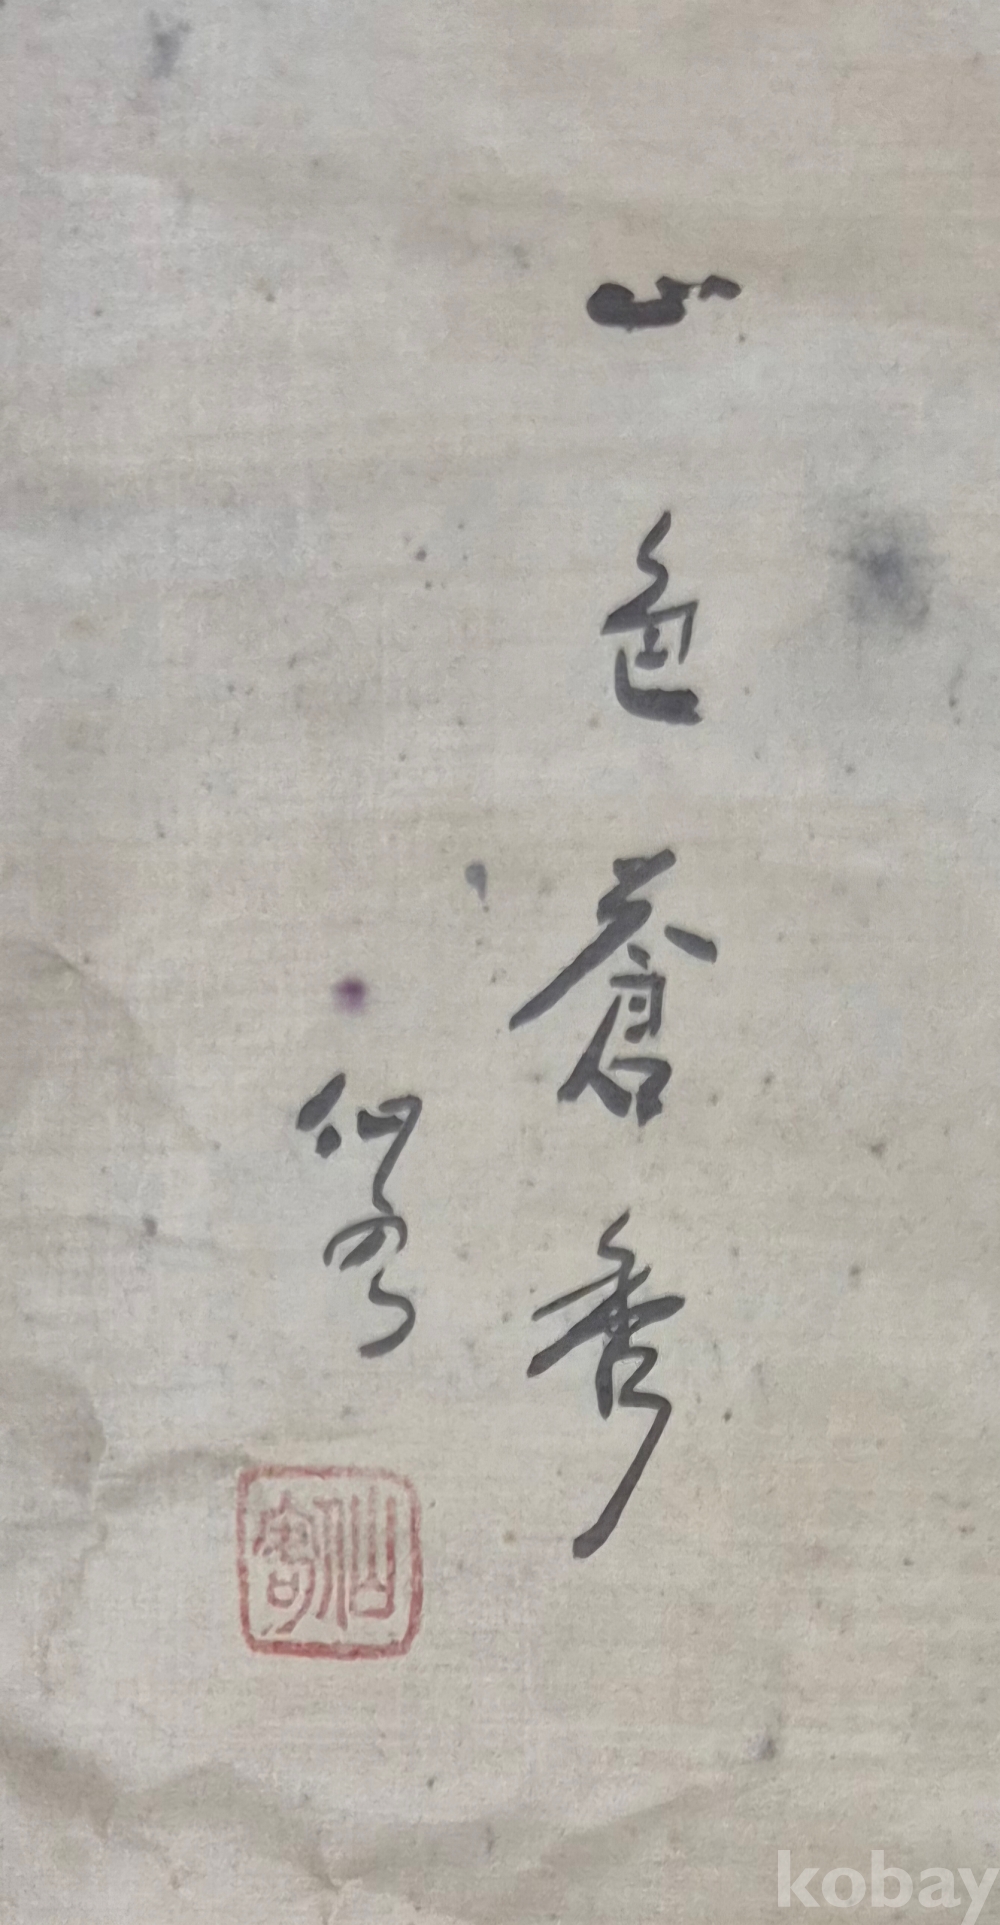 山色蒼秀
仙
仙
kobay